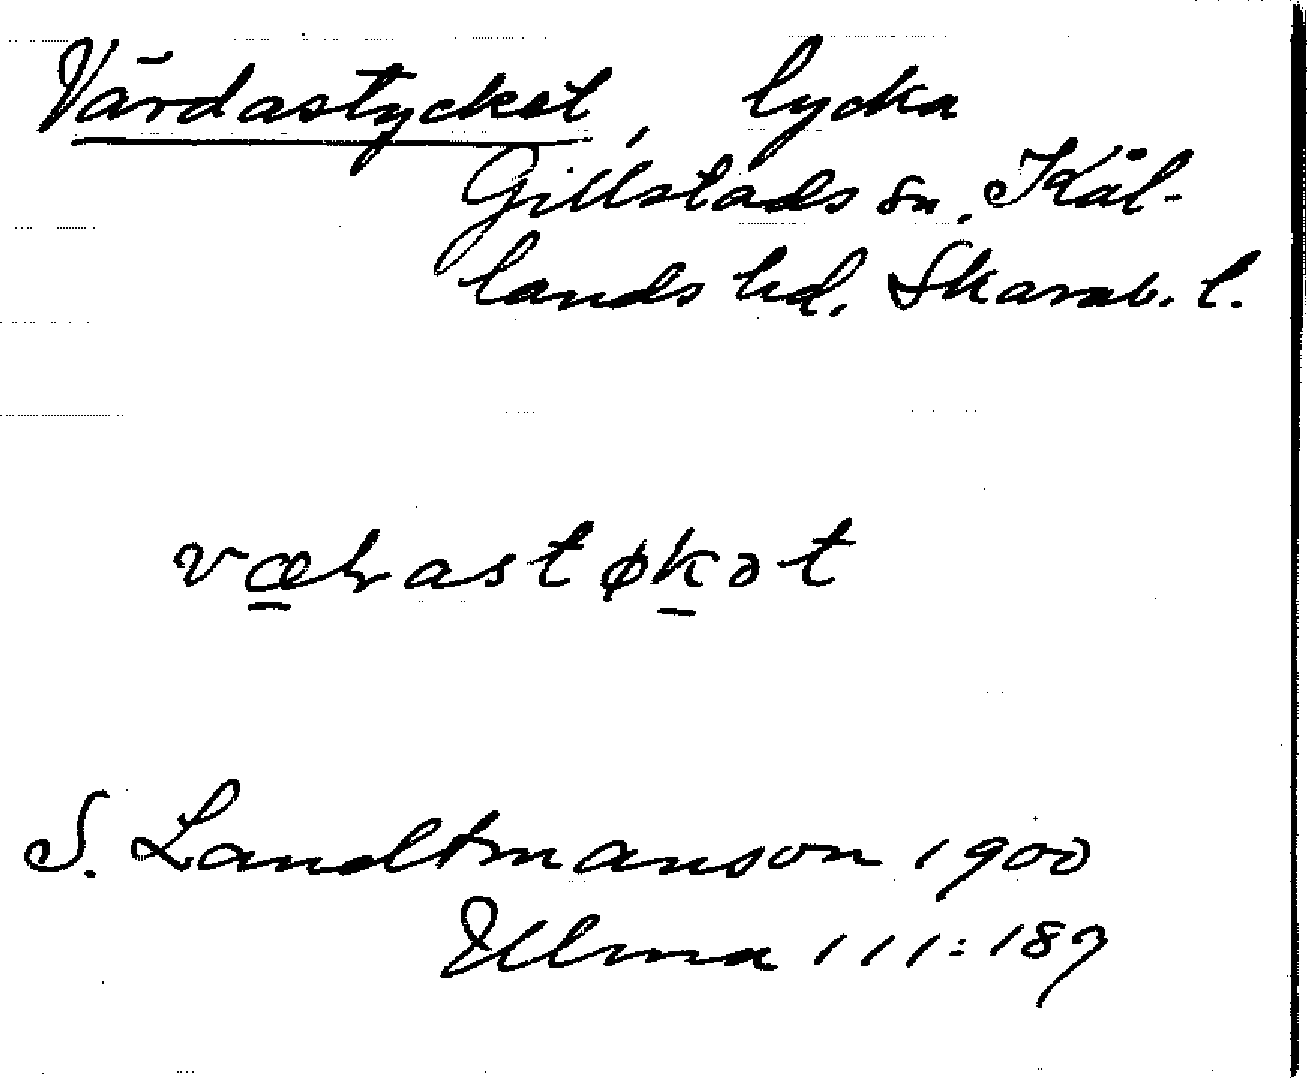 Värdastycket, lycka
Gillstads sn. Kål-
lands hd. Skarab. l.
væɽastøkət
S. Landtmanson 1900
Ulma 111:187